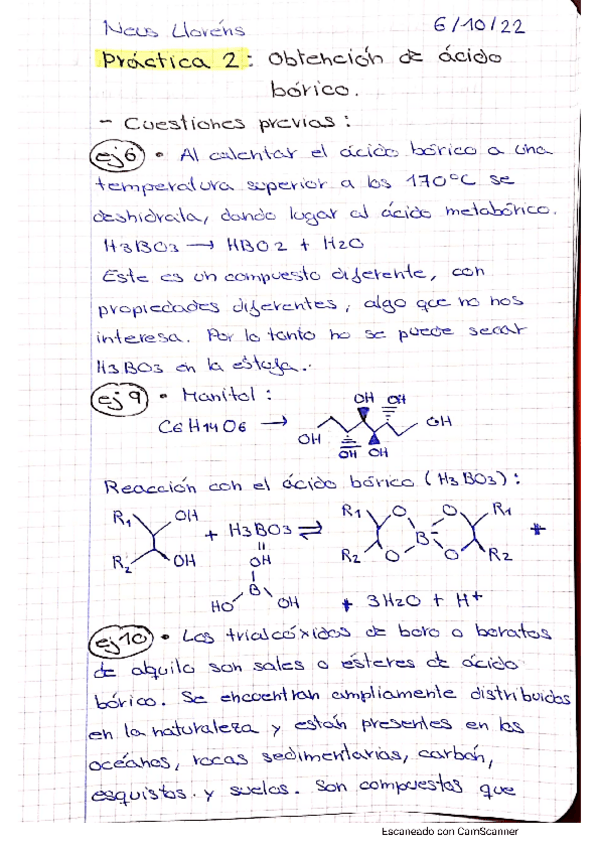 Neus Lloréns 6/10/22
Práctica 2: Obtención de ácido
bórico.
- Cuestiones previas:
ej6 • Al calentar el ácido bórico a una
temperatura superior a los 170ºC se
deshidrata, dando lugar al ácido metabórico.
H3BO3 → HBO2 + H2O
Este es un compuesto diferente, con
propiedades diferentes, algo que no nos
interesa. Por lo tanto no se puede secar
H3BO3 en la estufa.
ej9 • Manitol:
OH OH
C6H14O6 → OH
OH
OH OH
Reacción con el ácido bórico (H3BO3):
R1 OH R1 O O R1
+ H3BO3 ⇌ B- +
R2 OH R2 O O R2
OH
B
HO OH + 3H2O + H+
ej10 • Los trialcóxidos de boro o boratos
de alquilo son sales o ésteres de ácido
bórico. Se encuentran ampliamente distribuidos
en la naturaleza y están presentes en los
océanos, rocas sedimentarias, carbón,
esquistos y suelos. Son compuestos que
Escaneado con CamScanner